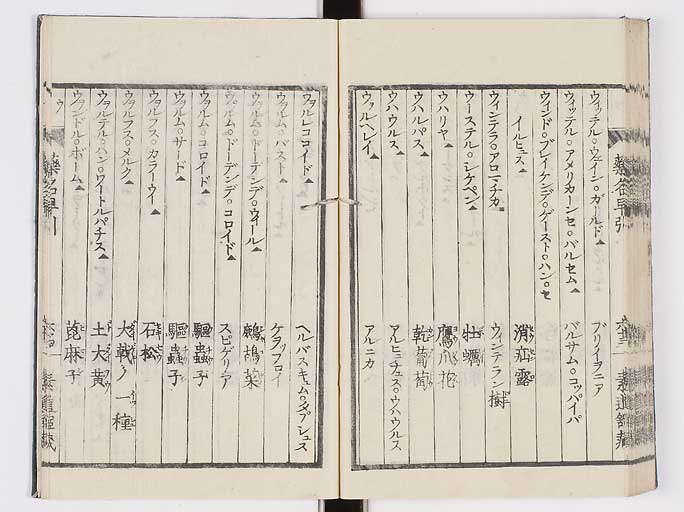 ウィッテル○ウェイン○ガールド▲ ブリイヲニア
ウィッテル○アメリカーンセ○バルセム▲ バルサム○コッパイバ
ウィンド○ブレイケンデ○ゲースト○ハン○セ
イルヒュス▲ 消疝露
ウィンテラ○アロマチカ ウィンテラン樹
ウーステル○シケペン▲ 牡蠣
ウハリヤ▲ 鷹爪花
ウハルパス▲ 乾葡萄
ウハウルス▲ アルヒュチュス○ウハウルス
ウァルヘレイ▲ アルニカ
ウァルレココイド▲ ヘルバスキュム○タプシュス
ウァルム○バスト▲ ケヲッフロイ
ウァルム○ドーデンデ○ウィール▲ 鷓鴣菜
ウァルム○ドーデンデ○コロイド▲ スピゲリア
ウァルム○コロイド▲ 驅蟲子
ウァルム○サード▲ 驅蟲子
ウァルフス○カラーウイ▲ 石松
ウァルフス○メルク▲ 大戟ノ一種
ウァルテル○ハン○ワートルパチス▲ 土大黄
ウァンドル○ボーム▲ 蓖麻子
ウ 藥名早引